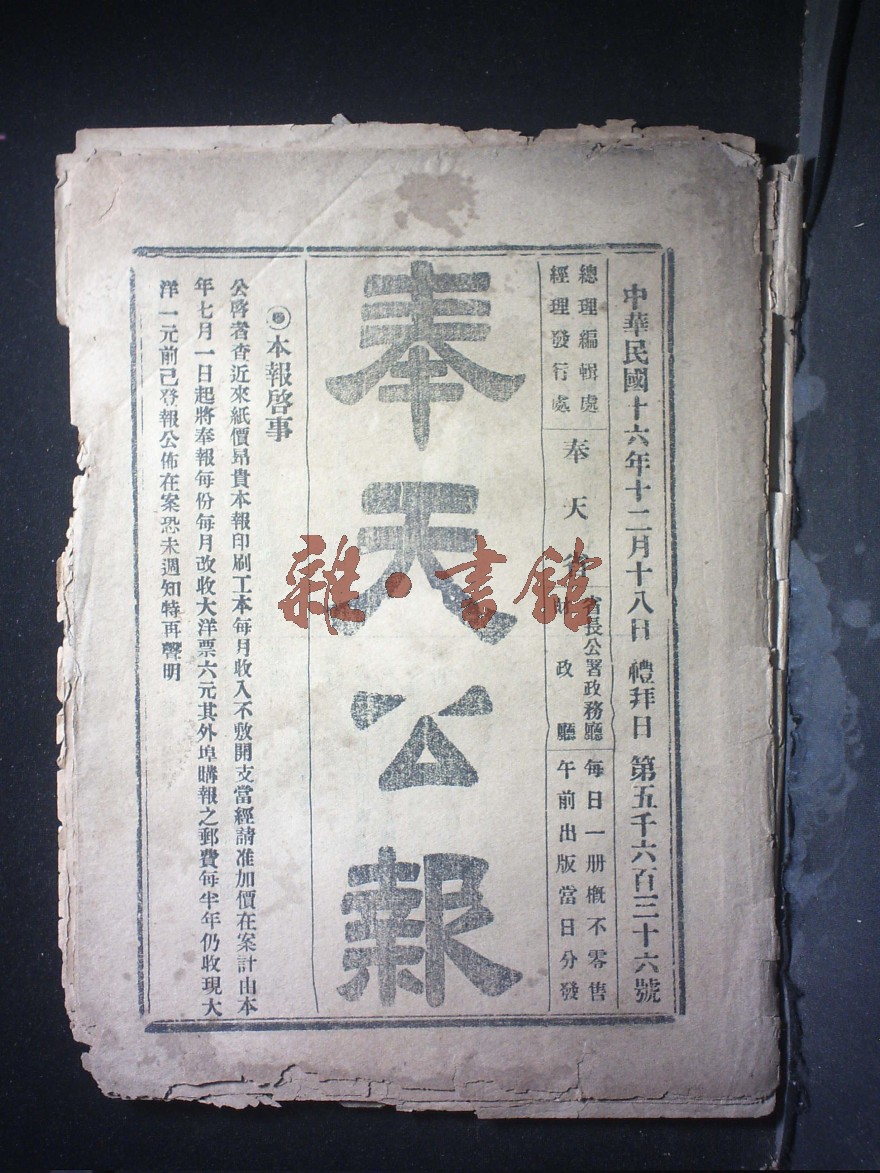 中華民國十六年十二月十八日 禮拜日 第五千六百三十六號
總理編輯處
經理發行處
奉天省
省長公署政務廳
財政廳
每日一册概不零售
午前出版當日分發
奉天公報
◉本報啓事
公啓者查近來紙價昂貴本報印刷工本每月收入不敷開支當經請准加價在案計由本
年七月一日起將奉報每份每月改收大洋票六元其外埠購報之郵費每半年仍收現大
洋一元前已登報公佈在案恐未週知特再聲明
雜·書館